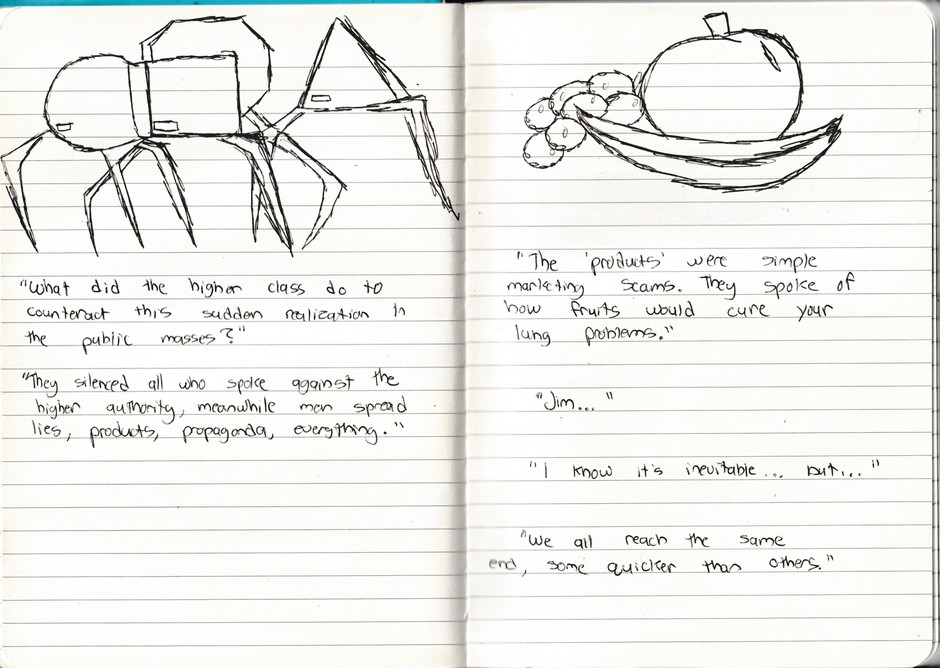 "What did the higher class do to
counteract this sudden realization in
the public masses?"
"They silenced all who spoke against the
higher authority, meanwhile men spread
lies, products, propaganda, everything."
"The 'products' were simple
marketing scams. They spoke of
how fruits would cure your
lung problems."
"Jim..."
"I know it's inevitable... but..."
"We all reach the same
end, some quicker than others."